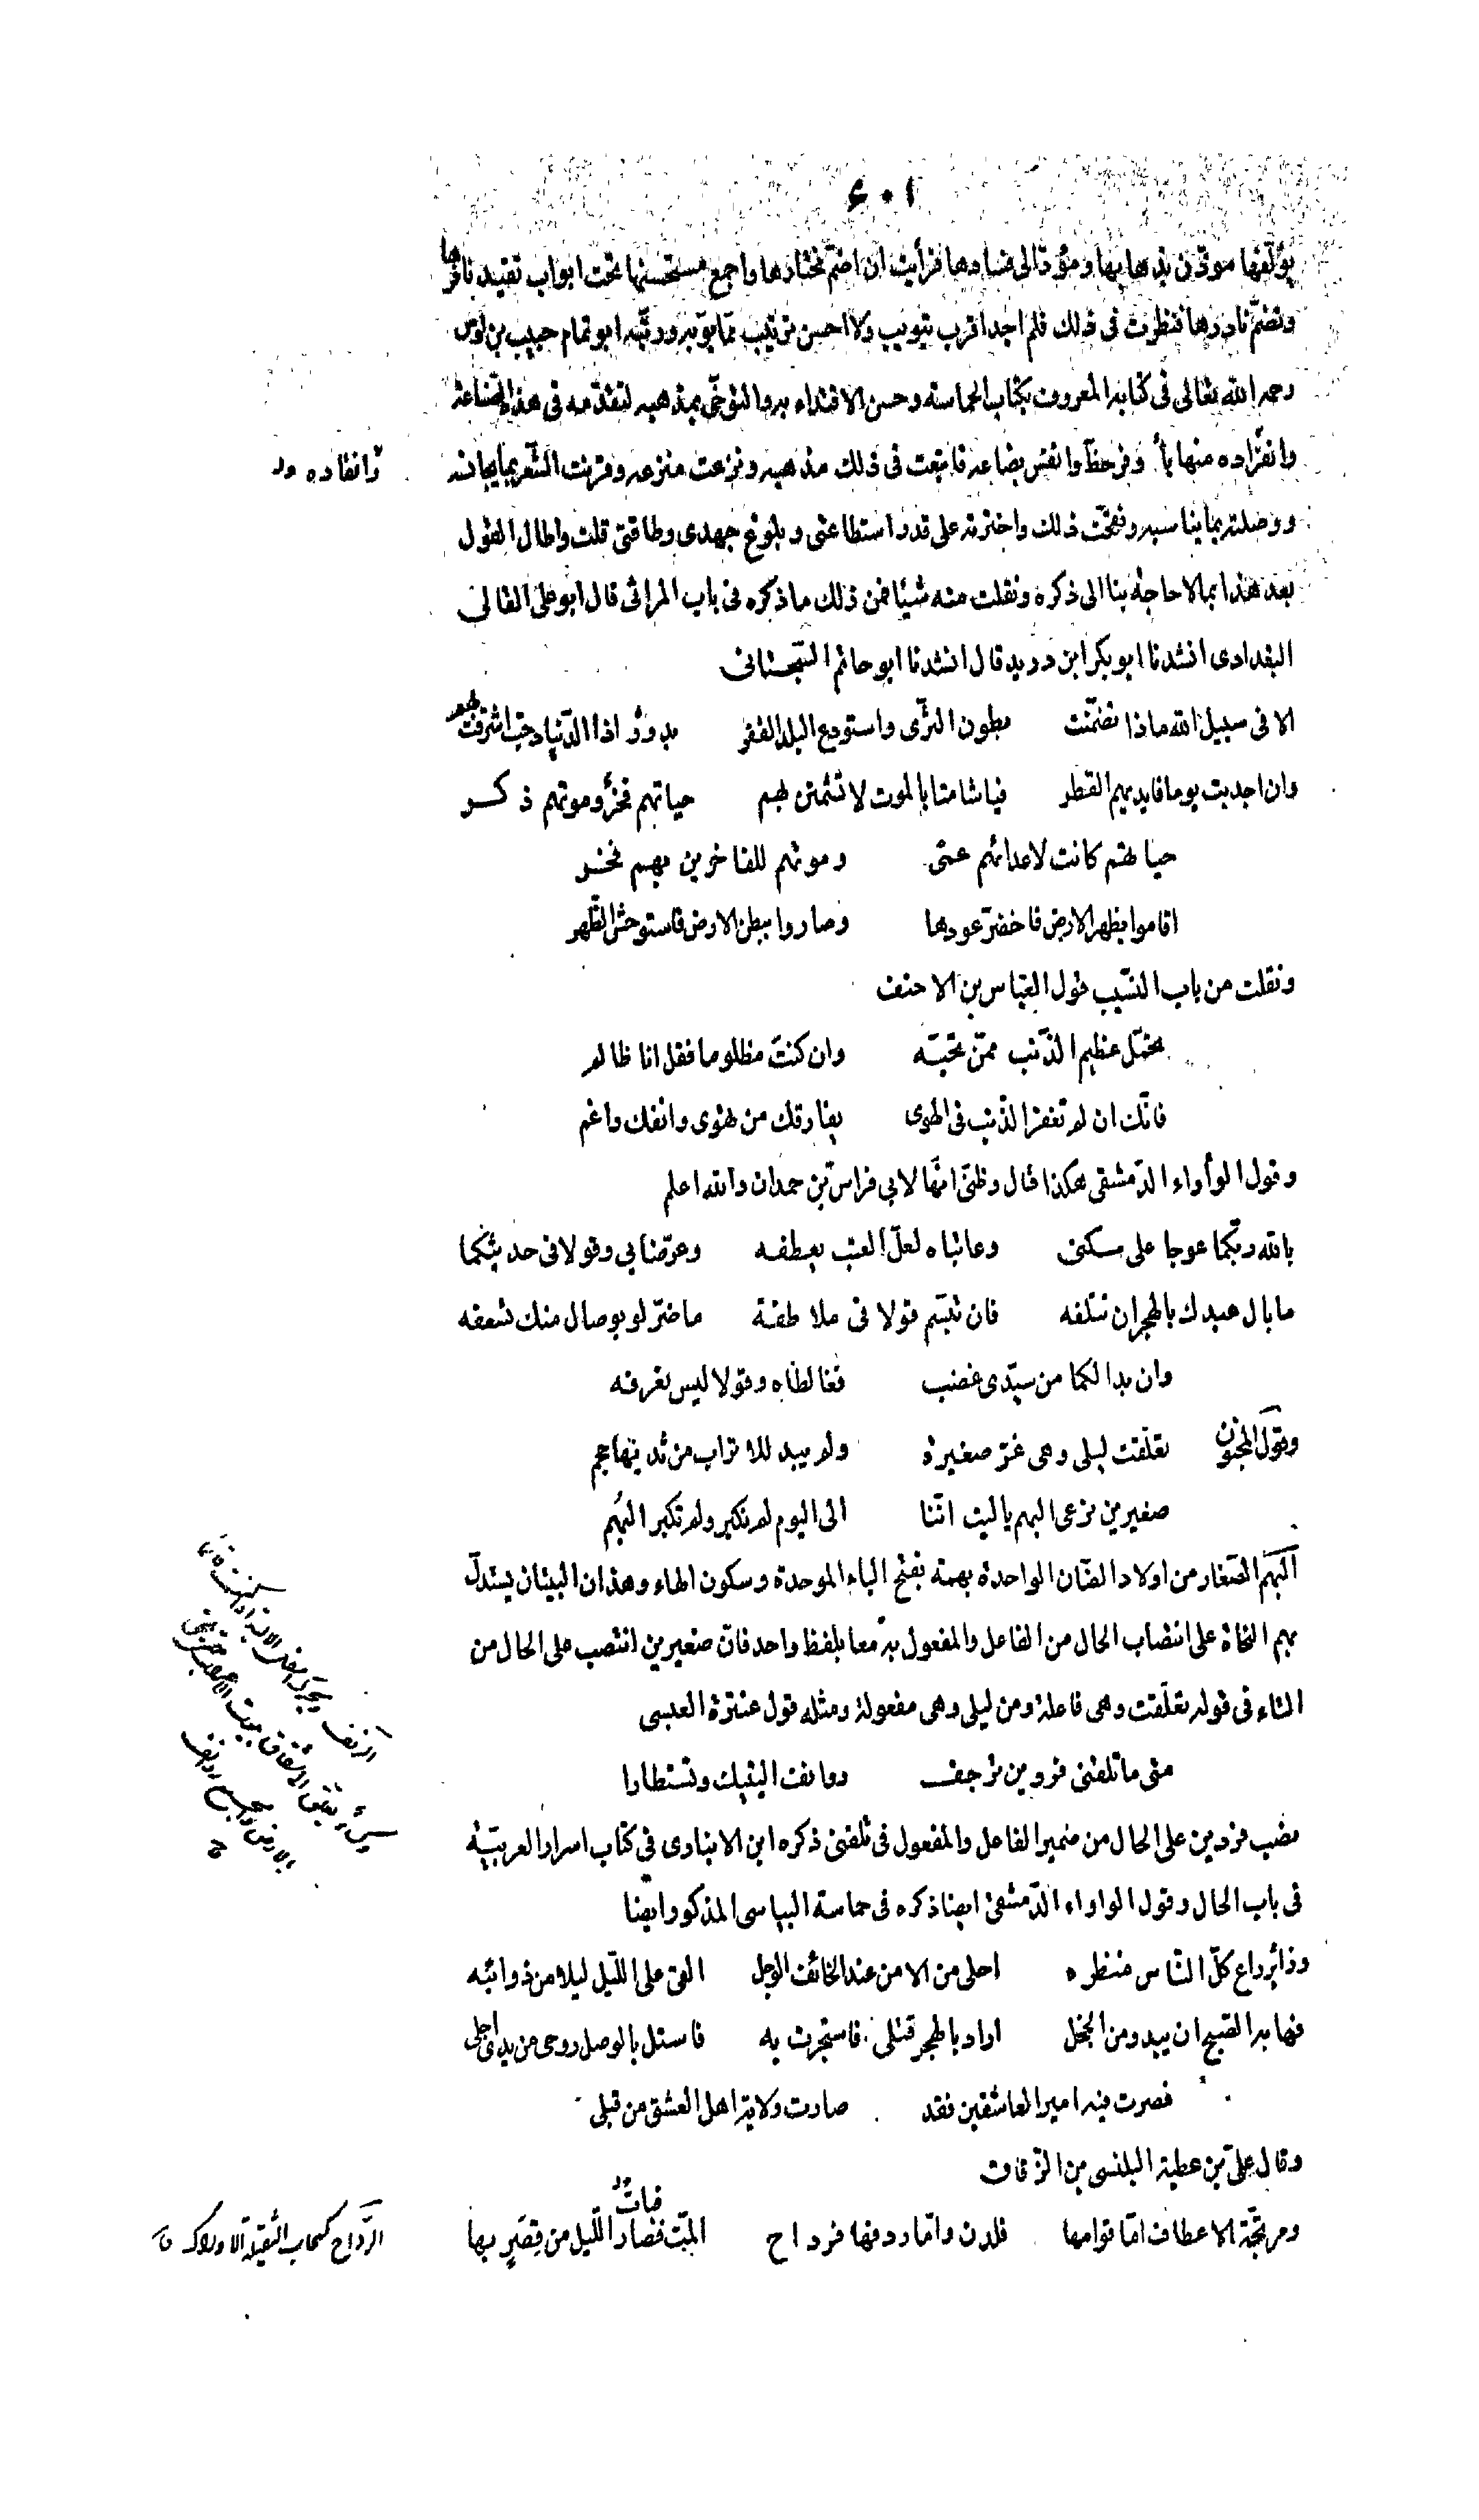 ٤٠١
يؤلفها موذن بذهابها ومؤد الى فسادها فرأيت ان اضم مختارها واجمع مستحسنها تحت ابواب تقيد نافرها
وتضم نادرها فنظرت فى ذلك فلم اجد اقرب تبويب ولا احسن ترتيب مما بوبه ورتبه ابو تمام حبيب بن اوس
رحمه الله تعالى فى كتابه المعروف بكتاب الحماسة وحسن الاقتداء به والتوخى بمذهبه لتقدمه فى هذه الصناعة
وانفراده منها بأوفر حظ وانفس بضاعة فاتبعت فى ذلك مذهبه ونزعت منزعه وقرنت الشعر بما يجانسه
ووصلته بما يناسبه ونقحت ذلك واخترته على قدر استطاعتى وبلوغ جهدى وطاقتى قلت واطال القول
بعد هذا بما لا حاجة بنا الى ذكره ونقلت منه شيئا فمن ذلك ما ذكره فى باب المراثى قال ابو على القالى
البغدادى انشدنا ابو بكر ابن دريد قال انشدنا ابو حاتم السجستانى
الا فى سبيل الله ماذا تضمنت بطون الثرى واستودع البلد القفر بدور اذا الدنيا دجت اشرقت بهم
وان اجدبت يوما فايديهم القطر فيا شامتا بالموت لا تشمتن بهم حياتهم فخر وموتهم ذكر
حياتهم كانت لاعدائهم عمى وموتهم للفاخرين بهم فخر
اقاموا بظهر الارض فاخضر عودها وصاروا ببطن الارض فاستوحش الظهر
ونقلت من باب النسيب قول العباس بن الاحنف
تحمل عظيم الذنب ممن تحبه وان كنت مظلوما فقل انا ظالم
فانك ان لم تغفر الذنب فى الهوى يفارقك من تهوى وانفك راغم
وقول الوأواء الدمشقى هكذا قال وظنى انها لابى فراس بن حمدان والله اعلم
بالله ربكما عوجا على سكنى وعاتباه لعل العتب يعطفه وعرضا بى وقولا فى حديثكما
ما بال عبدك بالهجران تتلفه فان تبسم قولا فى ملاطفة ما ضر لو بوصال منك تسعفه
وان بدا لكما من سيدى غضب فغالطاه وقولا ليس نعرفه
وقول المجنون تعلقت ليلى وهى غر صغيرة ولم يبد للاتراب من ثديها حجم
صغيرين نرعى البهم يا ليت اننا الى اليوم لم نكبر ولم تكبر البهم
البهم الصغار من اولاد الضان الواحدة بهمة بفتح الباء الموحدة وسكون الهاء وهذان البيتان يستدل
بهم النحاة على انتصاب الحال من الفاعل والمفعول به معا بلفظ واحد فان صغيرين انتصب على الحال من
التاء فى قوله تعلقت وهى فاعلة ومن ليلى وهى مفعولة ومثله قول عنترة العبسى
متى ما تلقنى فردين ترجف روانف اليتيك وتستطارا
نصب فردين على الحال من ضمير الفاعل والمفعول فى تلقنى ذكره ابن الانبارى فى كتاب اسرار العربية
فى باب الحال وقول الواواء الدمشقى ايضا ذكره فى حماسة البياسى المذكور ايضا
وزائر راع كل الناس منظره احلى من الامن عند الخائف الوجل القى على الليل ليلا من ذوائبه
فهابه الصبح ان يبدو من الخجل اراد بالهجر قتلى فاستجرت به فاستل بالوصل روحى من يدى اجلى
فصرت فيه امير العاشقين فقد صارت ولاية اهل العشق من قبلى
وقال على بن عطية البلنسى بن الزقاق
ومرتجة الاعطاف اما قوامها فلدن واما ردفها فرداح المت فصار الليل من قصر بها
فبات
وانقاده
الرداح كسحاب الثقيلة الاوراك ق